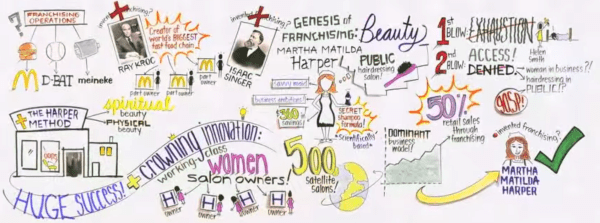 ?
FRANCHISING
OPERATIONS
D-BAT
meineke
invented franchising?
Creator of
world's BIGGEST
fast food chain...
RAY KROC
part owner
part owner
part owner
invented franchising?
ISAAC
SINGER
GENESIS of
FRANCHISING:
MARTHA MATILDA
Harper
Beauty
PUBLIC
hairdressing
salon!
business ambitions
$360
savings!
SECRET
shampoo
formula!
scientifically
based
1st
BLOW:
EXHAUSTION
2nd
BLOW:
ACCESS!
DENIED
Helen
Smith
woman in business?!
hairdressing in
PUBLIC!?
GASP!
50%
retail sales
through
franchising
DOMINANT
business
model!
THE HARPER
METHOD
spiritual
beauty
PHYSICAL
beauty
HUGE SUCCESS!
+ crowning innovation:
working-class
women
salon owners!
H owner
H owner
H owner
H owner
500
satellite
salons!
invented franchising?
MARTHA
MATILDA
HARPER